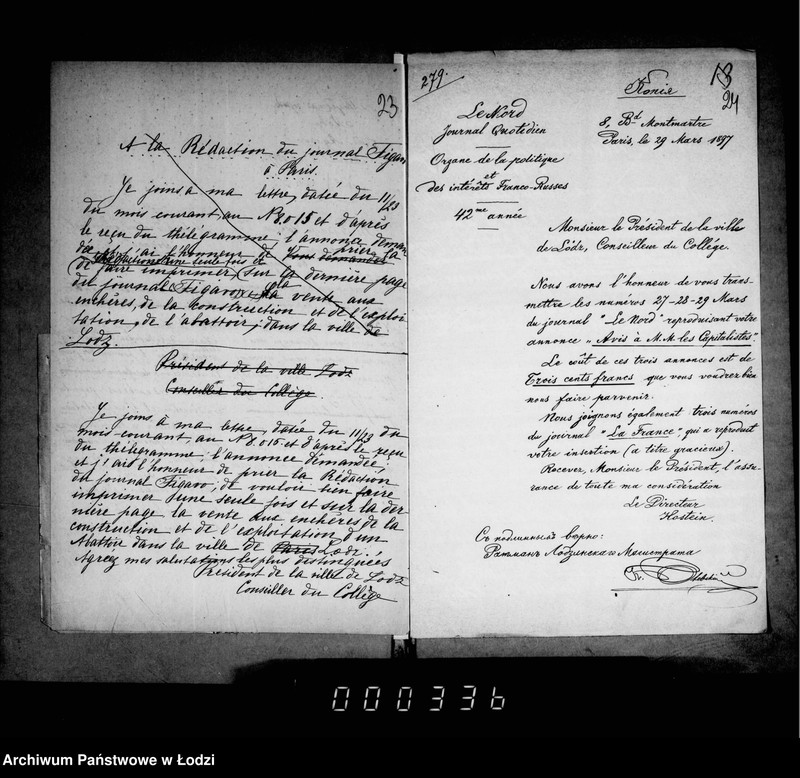 23
A la Rédaction du journal Figaro
à Paris.
Je joins a ma lettre, datée du 11/23
du mois courant au N 8015 et d'après
le reçu du thélégramme: l'annonce deman
dée et j'ai l'honneur de prier la
Rédaction une seule fois et
de faire imprimer, sur la dernière page
du journal Figaro la vente aux
enchères, de la construction et de l'exploi
tation, de l'abattoir, dans la ville de
Lodz.
Président de la ville Lodz
Conseiller du Collège.
Je joins à ma lettre, datée du 11/23 du
mois courant au N 8015 et d'après le reçu
du thélégramme: l'annonce démandée
et j'ais l'honneur de prier la Rédaction
du journal Figaro, de vouloir bien faire
imprimer d'une seule fois et sur la der
nière page la vente aux enchères de la
construction et de l'exploitation d'un
Abattoir dans la ville de Paris Lodz.
Agreez mes salutations les plus distinguées
Président de la ville de Lodz
Conseiller du Collège
279.
Копія
13
24
Le Nord
Journal Quotidien
8, Bd Montmartre
Paris, le 29 Mars 1897
Organe de la politique
et
des intérêts Franco-Russes
42me année
Monsieur le Président de la ville
de Lódz, Conseilleur du Collège.
Nous avons l'honneur de vous trans-
mettre les numéros 27-28-29 Mars
du journal "Le Nord" reproduisant votre
annonce "Avis à M.M. les Capitalistes".
Le coût de ces trois annonces est de
Trois cents francs que vous voudrez bien
nous faire parvenir.
Nous joignons également trois numéros
du journal "La France", qui a reproduit
votre insertion (a titre gracieux).
Recevez, Monsieur le Président, l'assu-
rance de toute ma considération
Le Directeur
Hostein.
Съ подлиннымъ вѣрно:
Ратманъ Лодзинскаго Магистрата
000336
Archiwum Państwowe w Łodzi